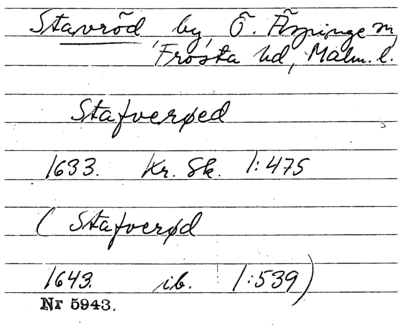 Stavröd, by, Ö. Äspinge sn,
Frosta hd, Malm. l.
Stafverøed
1633. Kr. Sk. 1:475
( Stafverød
1643. ib. 1:539)
Nr 5943.